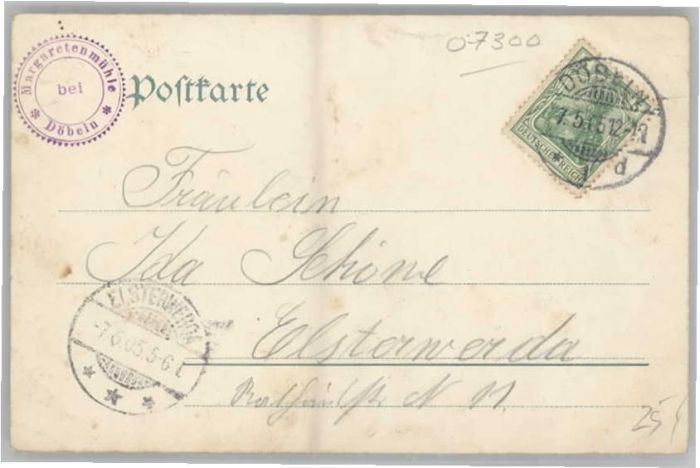 07300
Margaretenmühle
bei
Döbeln
Postkarte
DÖBELN
7.5.05.12-1N
d
DEUTSCHES REICH
Fräulein
Ida Schöne
ELSTERWERDA
-7.5.05.5-6N
Elsterwerda
N 11.
25